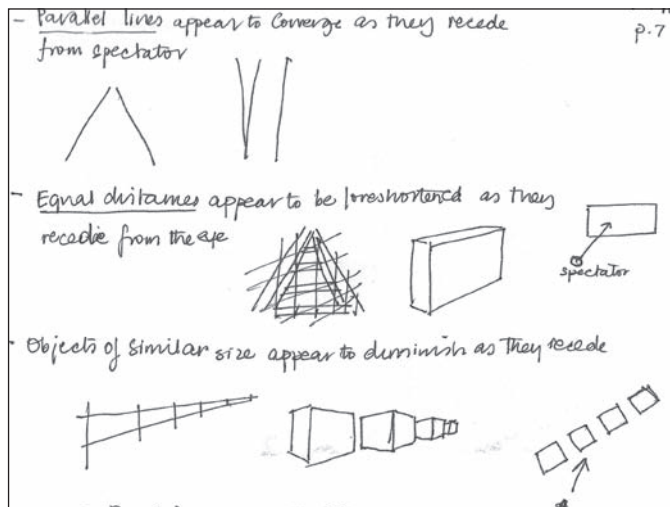 - Parallel lines appear to converge as they recede
p.7
from spectator
- Equal distames appear to be foreshortened as they
recedie from the eye
spectator
- Objects of similar size appear to diminish as they recede